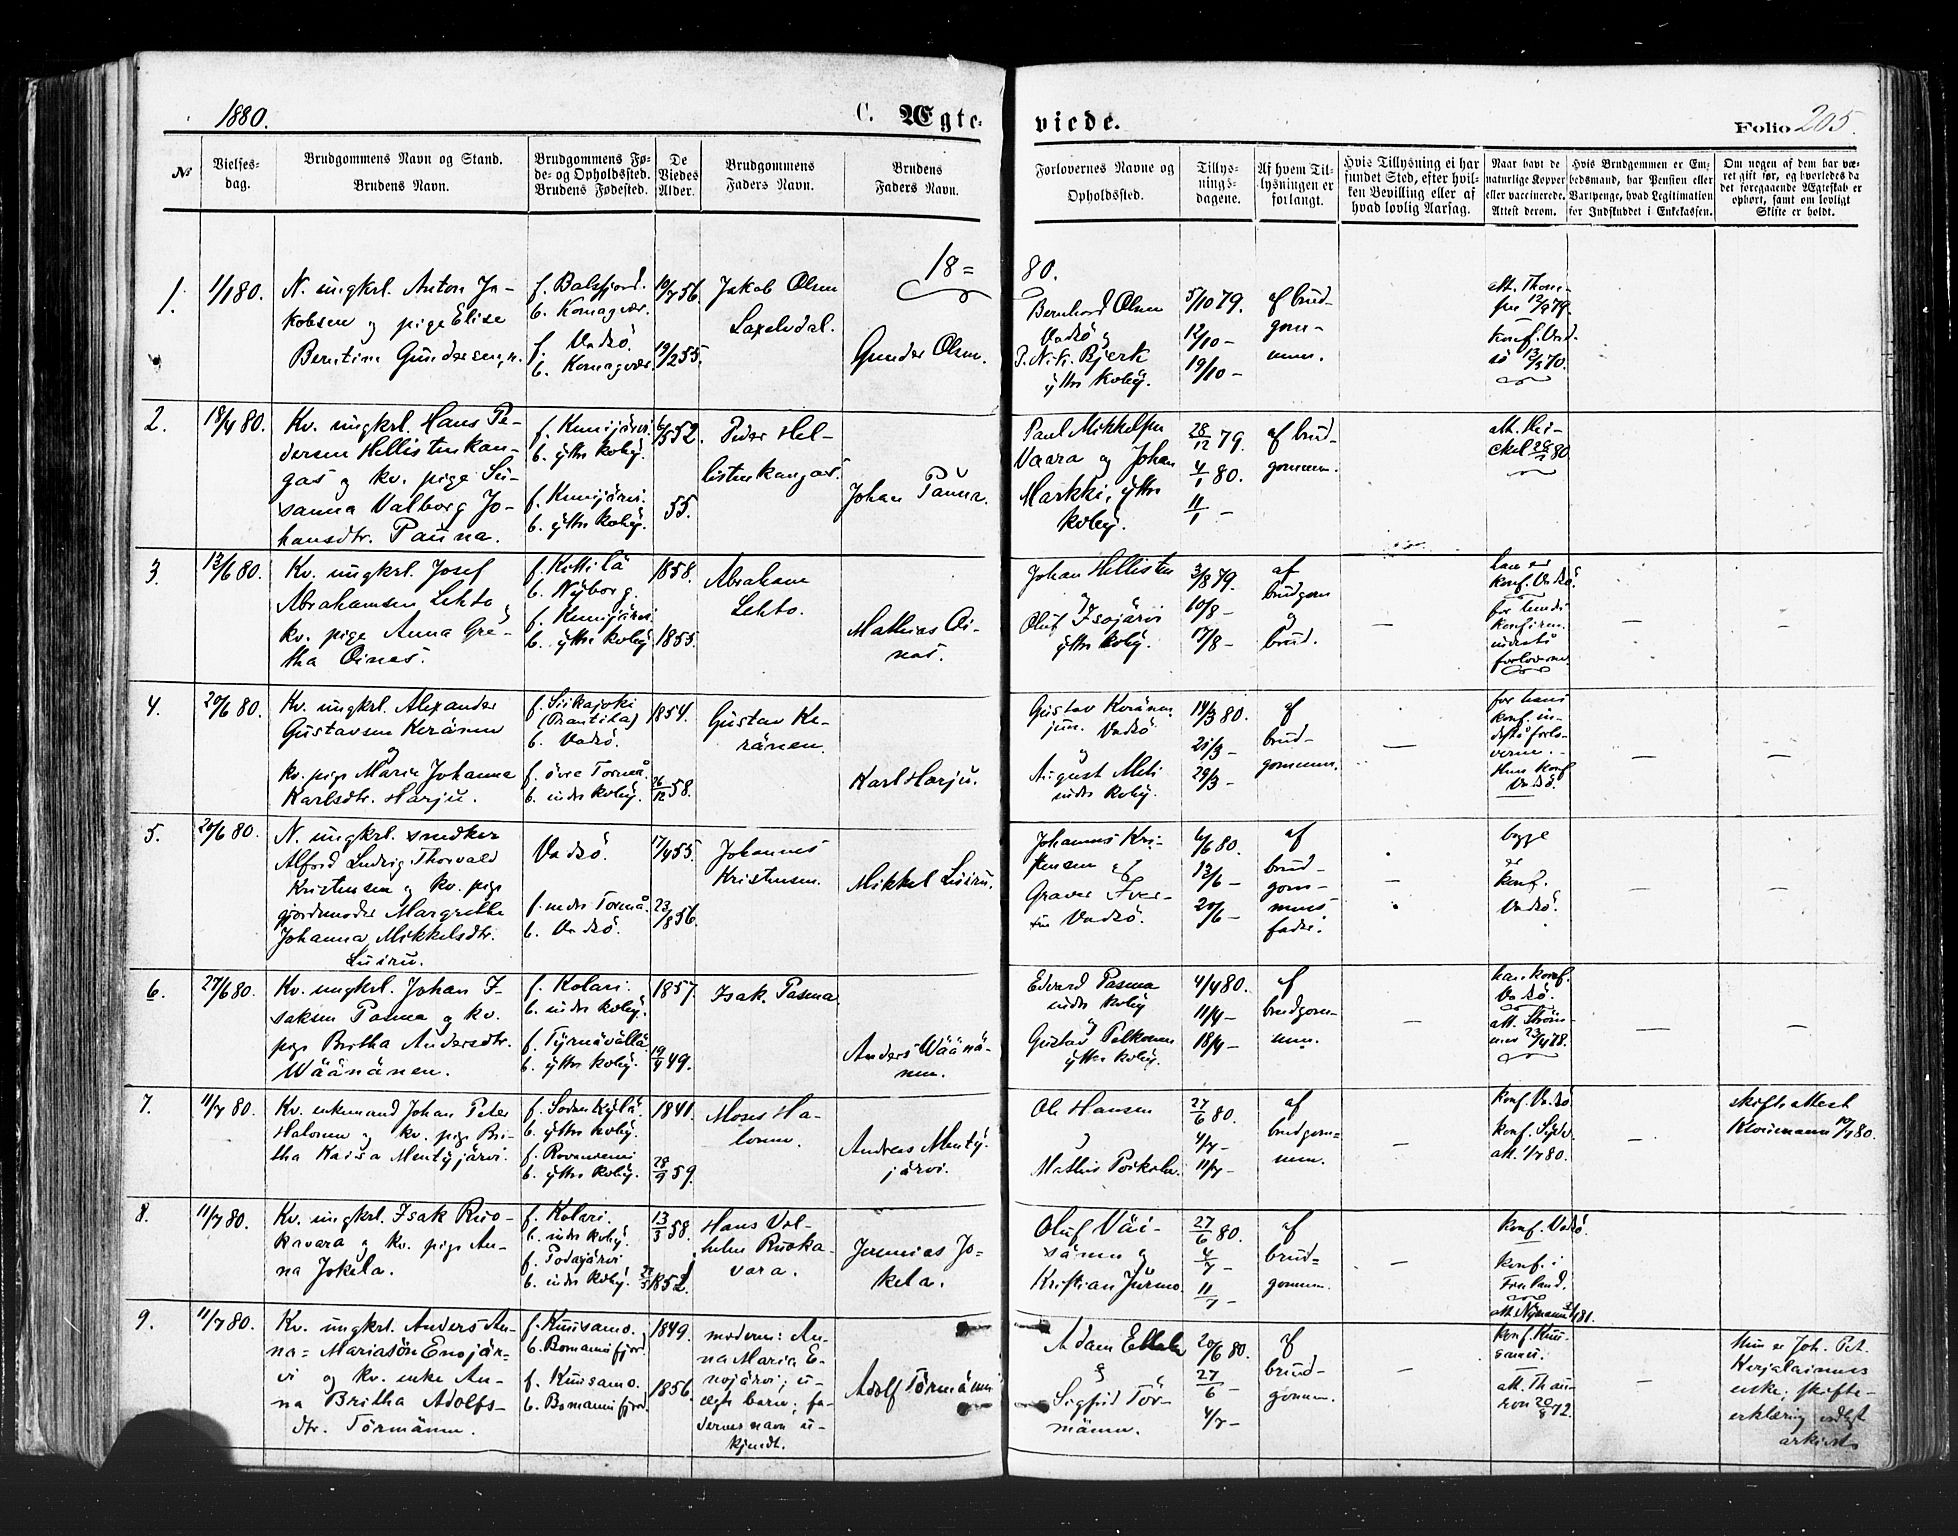 1880.
C. Ægte-
viede.
Folio 205.
№
Vielses-
dag.
Brudgommens Navn og Stand.
Brudens Navn.
Brudgommens Fø-
de- og Opholdssted.
Brudens Fødested.
De
Viedes
Alder.
Brudgommens
Faders Navn.
Brudens
Faders Navn.
Forlovernes Navne og
Opholdssted.
Tillys-
nings-
dagene.
Af hvem Til-
lysningen er
forlangt.
Hvis Tillysning ei har
fundet Sted, efter hvil-
ken Bevilling eller af
hvad lovlig Aarsag.
Naar havt de
naturlige Kopper
eller vaccinerede.
Attest derom.
Hvis Brudgommen er Em-
bedsmand, har Pension eller
Vartpenge, hvad Legitimation
for Indskuddet i Enkekassen.
Om nogen af dem har væ-
ret gift før, og hvorledes da
det foregaaende Ægteskab er
ophørt, samt om lovligt
Skifte er holdt.
18=
80.
1.
1/1 80.
N. ungkrl. Anton Ja-
kobsen og pige Elise
Berntine Gundersen, n.
f. Balsfjord.
b. Komagvær.
f. Vadsö.
b. Komagvær.
10/7 56.
19/2 55.
Jakob Olsen
Laxelvdal.
Gunder Olsen.
Bernhard Olsen
Vadsö og
P. N. K. Bjerk
yttre kvby.
5/10 79.
12/10 –
19/10 –
af brud-
gom-
men.
att. Thom-
sen 12/9 79.
konf. Vad-
sö 13/3 70.
2.
18/4 80.
Kv. ungkrl. Hans Pe-
dersen Hellistenkan-
gas og kv. pige Su-
sanna Valborg Jo-
hansdtr. Pauna.
f. Kemijärvi.
b. yttre kvby.
f. Kemijärvi.
b. yttre kvby.
6/5 52.
55.
Peder Hel-
listenkangas.
Johan Pauna.
Paul Mikkelsen
Vaara og Johan
Markki, yttre
kvby.
28/12 79.
4/1 80.
11/1 –
af brud-
gommen.
att. Hei-
ckel 26/1 80.
3.
13/6 80.
Kv. ungkrl. Josef
Abrahamsen Lehto,
kv. pige Anna Gre-
tha Oinas.
f. Kittilä
b. Nyborg.
f. Kemijärvi.
b. yttre kvby.
1858.
1855.
Abraham
Lehto.
Mathias Oi-
nas.
Johan Hellisten
og
Oluf Isojärvi
yttre kvby.
3/8 79.
10/8 –
17/8 –
af
brudgom
og
brud.
han er
konf. Vadsö
for hendes
konfirm.
indestå
forloverne.
4.
20/6 80.
Kv. ungkrl. Alexander
Gustavsen Keränen
og
kv. pige Maria Johanna
Karlsdtr. Harju.
f. Siikajoki
(Frantsila)
b. Vadsö.
f. övre Torneå.
b. indre kvby.
1854.
26/12 58.
Gustav Ke-
ränen.
Karl Harju.
Gustav Keränen
jun. Vadsö
og
August Meli
indre kvby.
14/3 80.
21/3 –
29/3 –
af
brud-
gommen.
for hans
konf. in-
destå forlo-
verne. –
Hun konf
Vadsö.
5.
20/6 80.
N. ungkrl. snedker
Alfred Ludvig Thorvald
Kristensen og kv. pige
gjordmoder Margrethe
Johanna Mikkelsdtr.
Luiru.
Vadsö.
f. nedre Torneå.
b. Vadsö.
17/4 55.
23/8 56.
Johannes
Kristensen.
Mikkel Luiru.
Johannes Kri-
stensen og
Graver Iver-
sen Vadsö.
6/6 80.
13/6 –
20/6 –
af
brud-
gom-
mens
fader.
begge
er
konf.
Vadsö.
6.
27/6 80.
Kv. ungkrl. Johan I-
saksen Pasma og kv.
pige Britha Andersdtr.
Wäänänen.
f. Kolari.
b. indre kvby.
f. Tyrnävällä.
b. yttre kvby.
1857.
19/4 49.
Isak Pasma
Anders Wäänä-
nen.
Edvard Pasma
indre kvby
og
Gustav Pelkonen
yttre kvby.
4/4 80.
11/4 –
18/4 –
af
brudgom-
men.
han konf.
Vadsö.
att. Ström-
mer 23/4 78.
7.
11/7 80.
Kv. enkemand Johan Peter
Halonen og kv. pige Bri-
tha Kaisa Mentyjärvi.
f. Sodankylä.
b. yttre kvby.
f. Rovaniemi
b. yttre kvby.
1841.
28/9 59.
Moses Ha-
lonen.
Andreas Menty-
järvi.
Ole Hansen
og
Mathis Poikela.
27/6 80.
4/7 –
11/7 –
af
brudgom=
men.
konf. Vadsö
konf. Sydv.
att. 1/7 80.
skifteattest
Klouman 10/7 80.
8.
11/7 80.
Kv. ungkrl. Isak Ruo-
kavara og kv. pige An-
na Jokela.
f. Kolari.
b. indre kvby.
f. Pudasjärvi
b. indre kvby.
13/3 58.
1852.
Hans Vil-
helm Ruoka-
vara.
Jeremias Jo-
kela.
Oluf Väi-
sänen og
Kristian Jurmo.
27/6 80.
4/7 –
11/7 –
af
brud=
gommen.
konf. Vadsö
konf. i
Finland.
att. Nymann 81.
9.
11/7 80.
Kv. ungkrl. Anders An-
na= Mariasön Enojär-
vi og kv. enke An-
na Britha Adolfs-
dtr. Törmänen.
f. Kuusamo.
b. Bomannsfjord
f. Kuusamo.
b. Bomannsfjord
1849.
1856.
moderen: An-
na Maria E-
nojärvi; u-
ægte barn; fa-
derens navn u-
kjendt.
Adolf Törmänen
Adam Ekkala
og
Sigfrid Tör-
mänen.
20/6 80.
27/6 –
4/7 –
af
brud-
gommen.
konf. Kuu-
samo.
att. Thau-
ron 20/8 72.
Hun er Joh. Pet.
Kerjalainens
enke; skifte-
erklæring vedlagt
arkivet